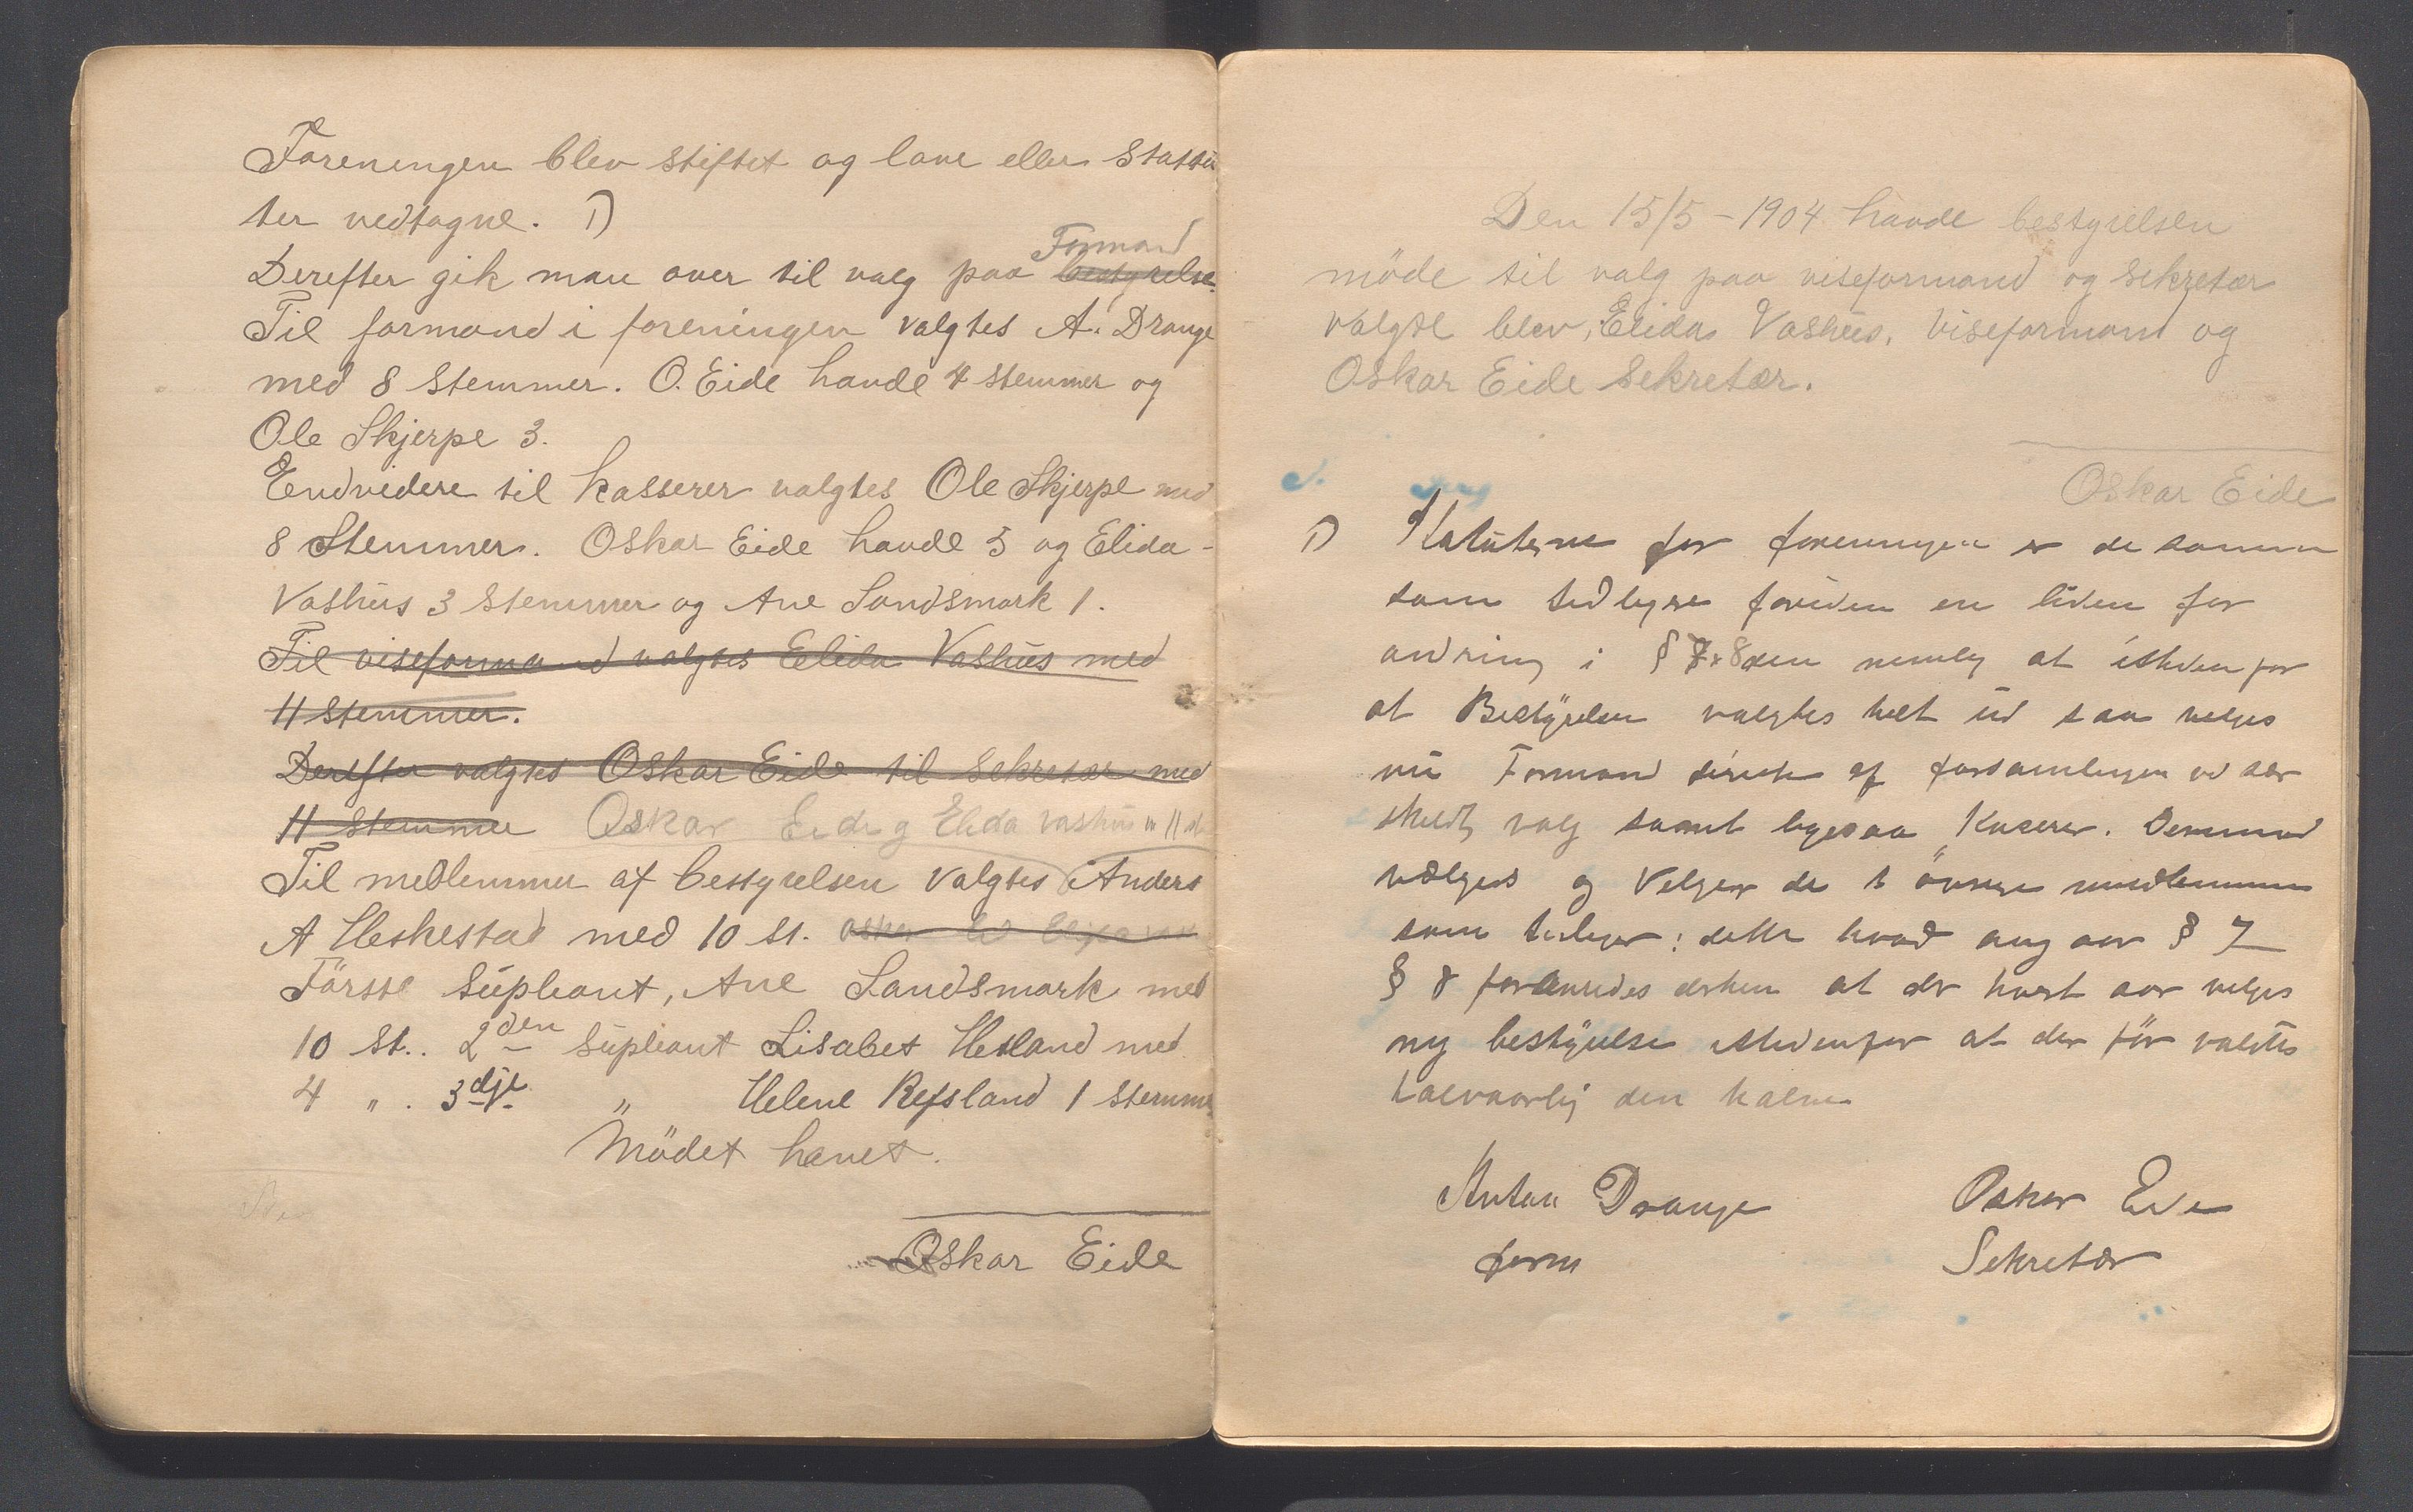 Foreningen blev stiftet og lave eller Stattu
ter vedtagne. 1)
Formand
Derefter gik man over til valg paa bestyrelse.
Til formand i foreningen valgtes A. Drange
med 8 Stemmer. O. Eide havde 4 stemmer og
Ole Skjerpe 3.
Endvidere til kasserer valgtes Ole Skjerpe med
8 Stemmer. Oskar Eide havde 5 og Elida
Vashus 3 Stemmer og Ane Landsmark 1.
Til viseformand valgtes Elida Vashus med
11 stemmer.
Derefter valgtes Oskar Eide til Sekretær med
11 Stemmer Oskar Eide og Elida Vashus m 11 st
Til medlemmer af bestyrelsen valgtes Anders
A Heskestad med 10 st.
Förste Supleant, Ane Landsmark med
10 St.. 2den Supleant Lisabet Hetland med
4 " . 3dje " Helene Refsland 1 Stemme
Mödet hævet.
Oskar Eide
Den 15/5-1904 havde bestyrelsen
möde til valg paa viseformand og Sekretær
valgte blev, Elida Vashus, viseformand og
Oskar Eide Sekretær.
Oskar Eide
1) Statuterne for foreningen er de samme
som tidligere foruden en liden for
andring i § 7 8 nemlig at istedenfor
at Bestÿrelsen valgtes helt ud saa velges
nu Formand direkte af forsamlingen ved sær
skildt valg samt ligesaa Kaserer.
vælges og Velger de övrige medlemmer
som tidliger: dette hvad ang aar § 7
§ 8 forandredes derhen at der hvert aar velges
ny bestÿrelse istedenfor at der för valgtes
halvaarlig den halve
Anton Drange Oskar Eide
form Sekretær